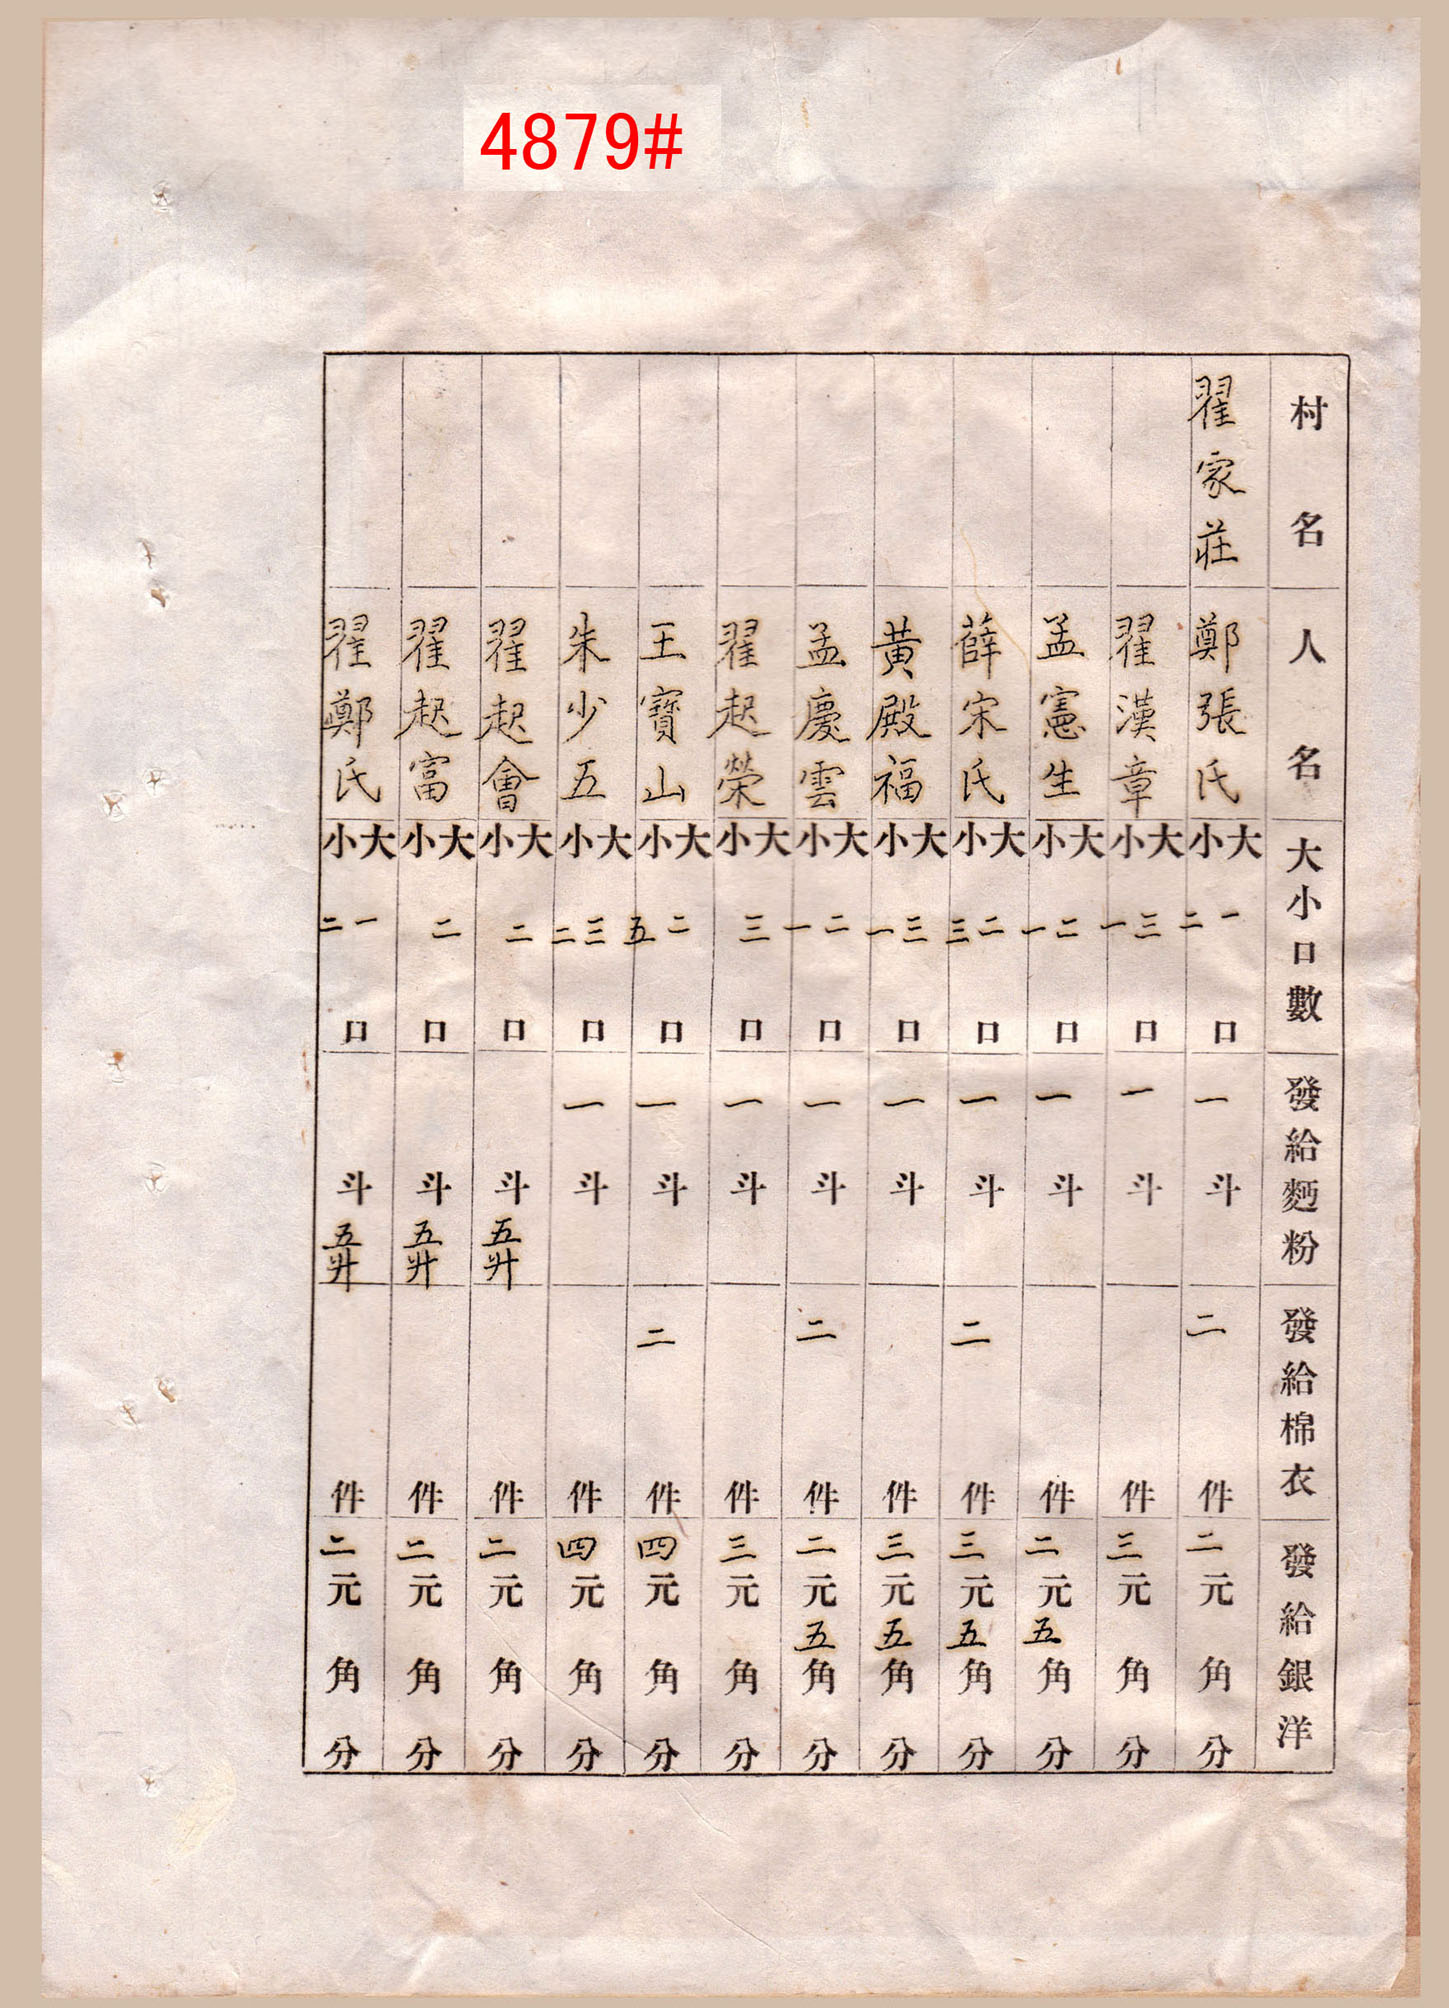 4879#
村名 人名 大小口數 發給麪粉 發給棉衣 發給銀洋
翟家莊 鄭張氏 大一小二口 一斗 二件 二元角分
翟漢章 大三小一口 一斗 件 三元角分
孟憲生 大二小一口 一斗 件 二元五角分
薛宋氏 大二小三口 一斗 二件 三元五角分
黃殿福 大三小一口 一斗 件 三元五角分
孟慶雲 大二小一口 一斗 二件 二元五角分
翟起榮 大三小口 一斗 件 三元角分
王寶山 大二小五口 一斗 二件 四元角分
朱少五 大三小二口 一斗 件 四元角分
翟起會 大二小口 斗五升 件 二元角分
翟起富 大二小口 斗五升 件 二元角分
翟鄭氏 大一小二口 斗五升 件 二元角分